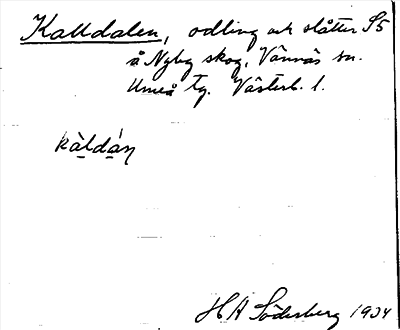 Kalldalen, odling och slåtter S5
å Nyby skog, Vännäs sn.
Umeå tg. Västerb. l.
kàldán
H A Söderberg 1934